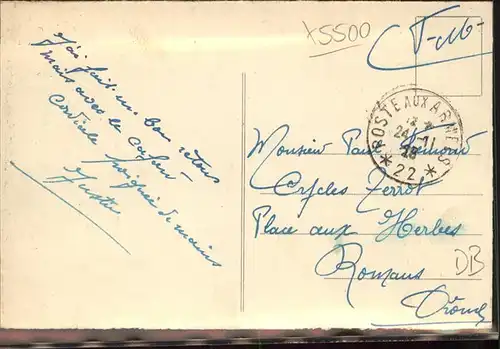 x5500
F-M-
J'ai fait un bon retour
mais avec le cafard
Cordiale poignée de mains
POSTE AUX ARMÉES
24 - 11
* 22 *
Monsieur Paul
Cycles Terrot
Place aux Herbes
Romans
Drôme
DB